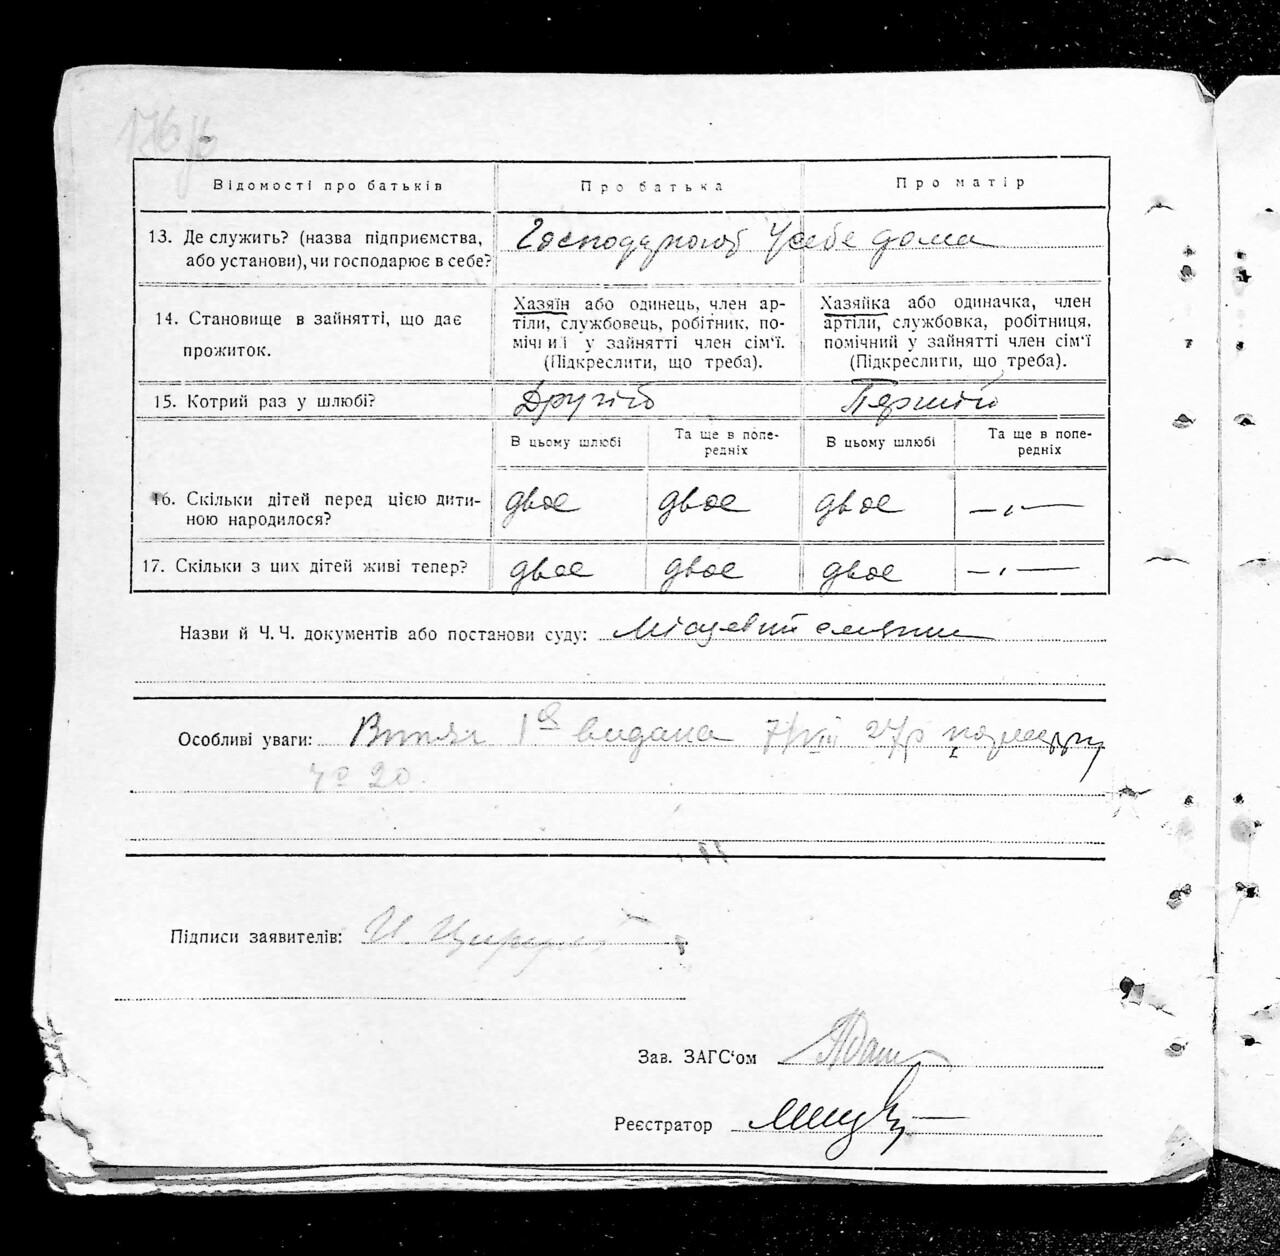 176/б
Відомості про батьків Про батька Про матір
13. Де служить? (назва підприємства, або установи), чи господарює в себе? Господарюют У себе дома
14. Становище в зайнятті, що дає прожиток.
Хазяїн або одинець, член ар-
тіли, службовець, робітник, по-
мічний у зайнятті член сім'ї.
(Підкреслити, що треба).
Хазяйка або одиначка, член
артіли, службовка, робітниця,
помічний у зайнятті член сім'ї
(Підкреслити, що треба).
15. Котрий раз у шлюбі? Другий Перший
В цьому шлюбі Та ще в попе-
редніх В цьому шлюбі Та ще в попе-
редніх
16. Скільки дітей перед цією дити-
ною народилося? двое двое двое —„—
17. Скільки з цих дітей живі тепер? двое двое двое —„—
Назви й Ч.Ч. документів або постанови суду: Місцевий
Особливі уваги: 1 видана 7/VIII 27р
20.
Підписи заявителів: И.
Зав. ЗАГС'ом
Реєстратор